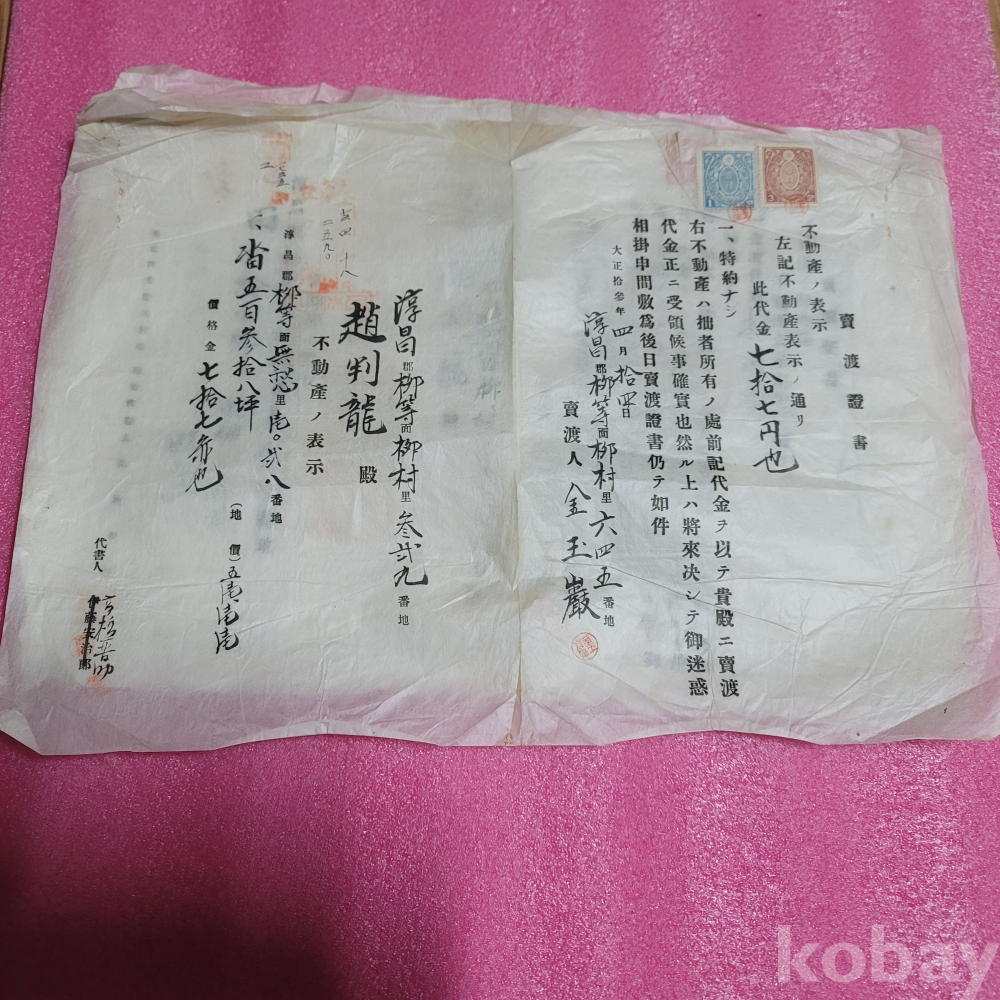 賣渡證書
不動產ノ表示
左記不動產表示ノ通リ
此代金七拾七円也
一、特約ナシ
右不動產ハ拙者所有ノ處前記代金ヲ以テ貴殿ニ賣渡
代金正ニ受領候事確實也然ル上ハ將來決シテ御迷惑
相掛申間敷爲後日賣渡證書仍テ如件
大正拾參年四月拾四日
淳昌郡柳等面柳村里六四五番地
賣渡人 金玉巖
淳昌郡柳等面柳村里叁弍九番地
趙判龍 殿
不動產ノ表示
淳昌郡柳等面無愁里 弍八番地
一、畓五百叁拾八坪
(地價)五
價格金七拾七
代書人
伊藤 治郎
1
3
kobay